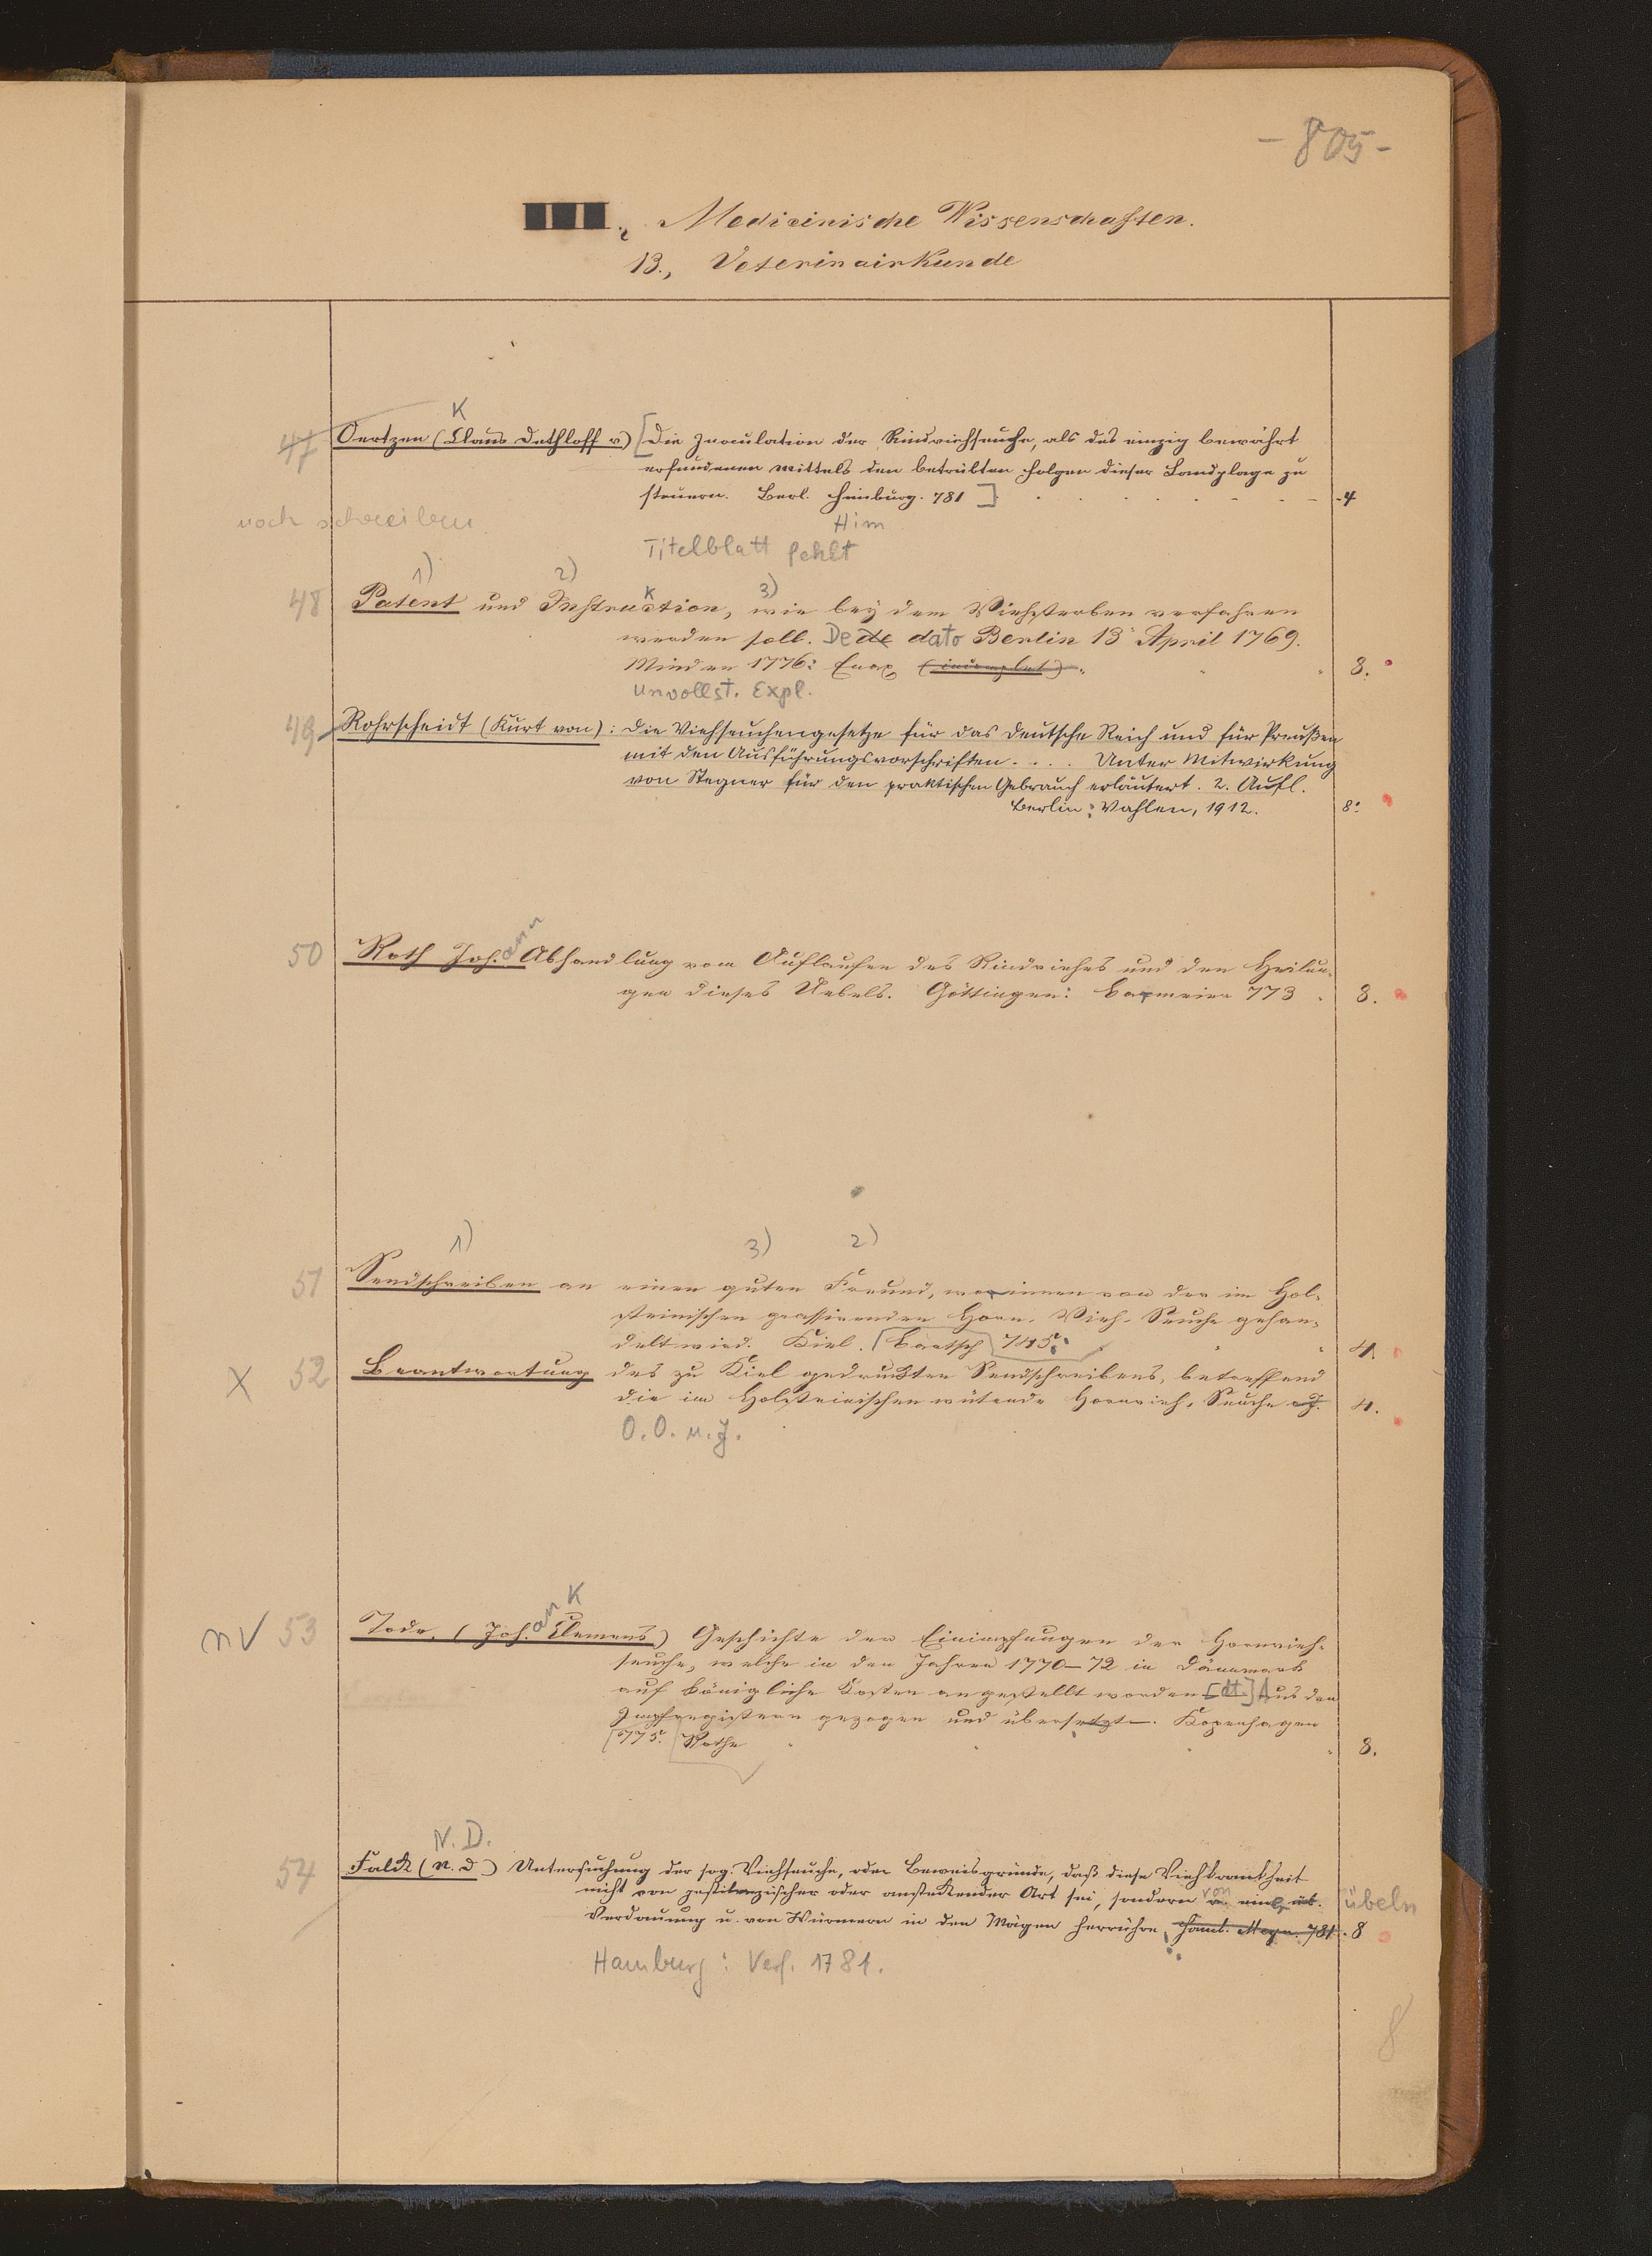 - 805 -
Medicinische Wissenschaften.
13., Veterinairkunde
K
47 Oertzen (Claus Dethloff v.) [Die Inoculation der Rindviehseuche, als das einzig bewährt
erfundenen mittels den betrübten Folgen dieser Landplage zu
steuern. Berl. Himburg. 781] 4
noch schreiben
Him
Titelblatt fehlt
1) 2) K 3)
48 Patent und Instruction, wie bey dem Viehsterben verfahren
werden soll. De de dato Berlin 13 April 1769.
Minden 1776: Enax (incomplet) 8.
unvollst. Expl.
49 Rohrscheidt (Kurt von): Die Viehseuchengesetze für das Deutsche Reich und für Preußen
mit den Ausführungsvorschriften. . . . Unter Mitwirkung
von Stegner für den praktischen Gebrauch erläutert. 2. Aufl.
Berlin: Vahlen, 1912. 8°
50 Roth Joh.ann Abhandlung vom Auflaufen des Rindviehes und den Heilun-
gen dieses Uebels. Göttingen: Barmeier 773 8.
1) 3) 2)
51 Sendschreiben an einen guten Freund, worinnen von der im Hol-
steinischen grassirenden Horn-Vieh-Seuche gehan-
delt wird. Kiel. Bartsch 745. 4.
X 52 Beantwortung des zu Kiel gedruckten Sendschreibens, betreffend
die im Holsteinischen wütende Hornvieh-Seuche o J. 4.
O. O. u. J.
an K
nv 53 Tode, (Joh. Clemens) Geschichte der Einimpfungen der Hornvieh-
seuche, welche in den Jahren 1770–72 in Dänemark
auf königliche Kosten angestellt worden [dt] Aus den
Impfregistern gezogen und übersetzt. Kopenhagen
775. Rothe 8.
N. D.
54 Falck (N. D) Untersuchung der sog. Viehseuche, oder Beweisgründe, daß diese Viehkrankheit
nicht von pestilenzischer oder ansteckender Art sei, sondern von einer üb. übeln
Verdauung u. von Würmern in den Mägen herrühre. Hamb. Meyn. 781. 8
Hamburg: Verf. 1781.
8